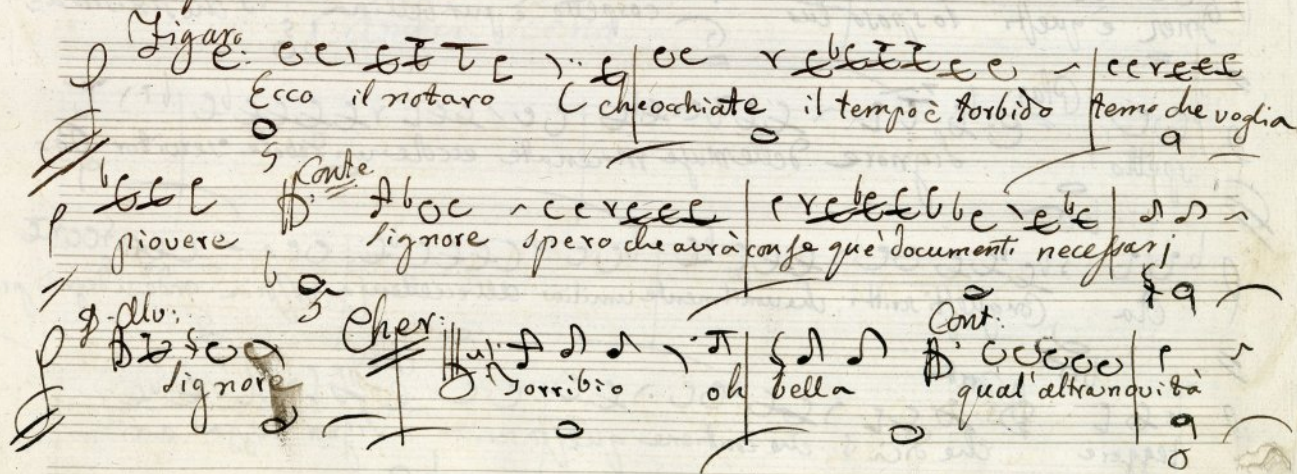 Figaro
Ecco il notaro che occhiate il tempo è torbido temo che voglia
Conte
piovere Signore spero che avrà con se que' documenti necessarj
Cher: Cont:
Signore Sorribio oh bella qual'altra novità